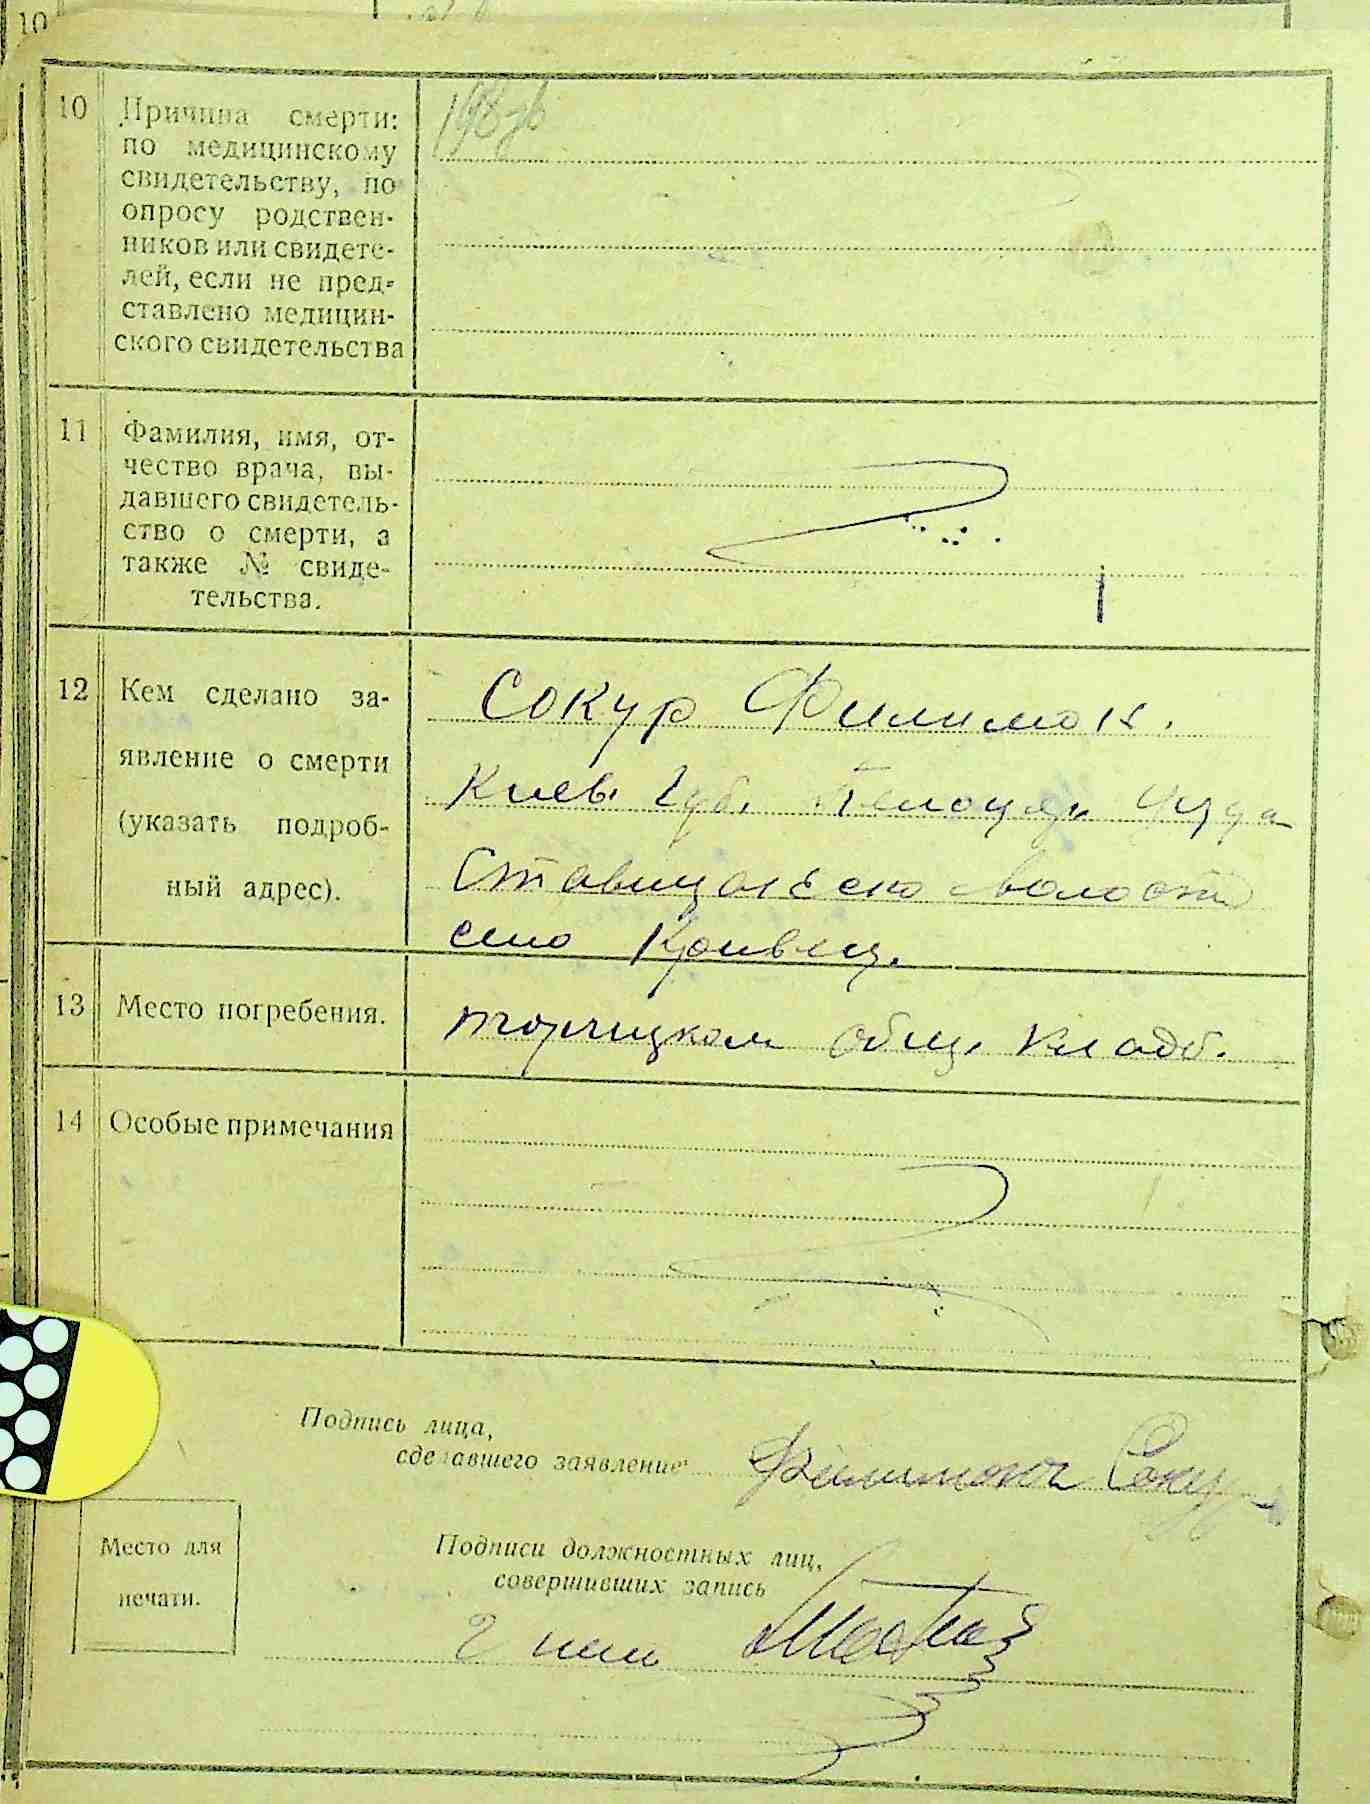 10
10 Причина смерти:
по медицинскому
свидетельству, по
опросу родствен-
ников или свидете-
лей, если не пред-
ставлено медицин-
ского свидетельства
11 Фамилия, имя, от-
чество врача, вы-
давшего свидетель-
ство о смерти, а
также № свиде-
тельства.
12 Кем сделано за-
явление о смерти
(указать подроб-
ный адрес).
Сокур Филимон.
Киев. Губ.
село Кривец.
13 Место погребения.
общ. кладб.
14 Особые примечания
Подпись лица,
сделавшего заявление Филимон Сокур
Место для
печати.
Подписи должностных лиц,
совершивших запись